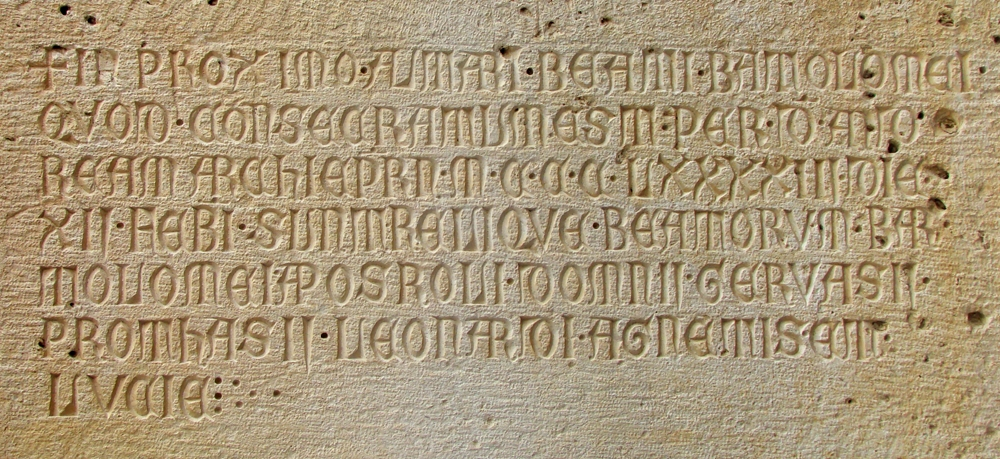 + IN PROXIMO · ALTARI · BEATI · BARTOLOMEI
QVOD · CONSECRATUM EST · PER · D · AND
REAM M · C · C · C · LXXXXIII · DIE ·
XII · FEBI · SUNT RELIQVE · BEATORVM · BAR
TOLOMEI APOSTOLI DOMNII · GERVASII ·
PROTHASII · LEONARDI · AGNETIS ET ·
LVCIE